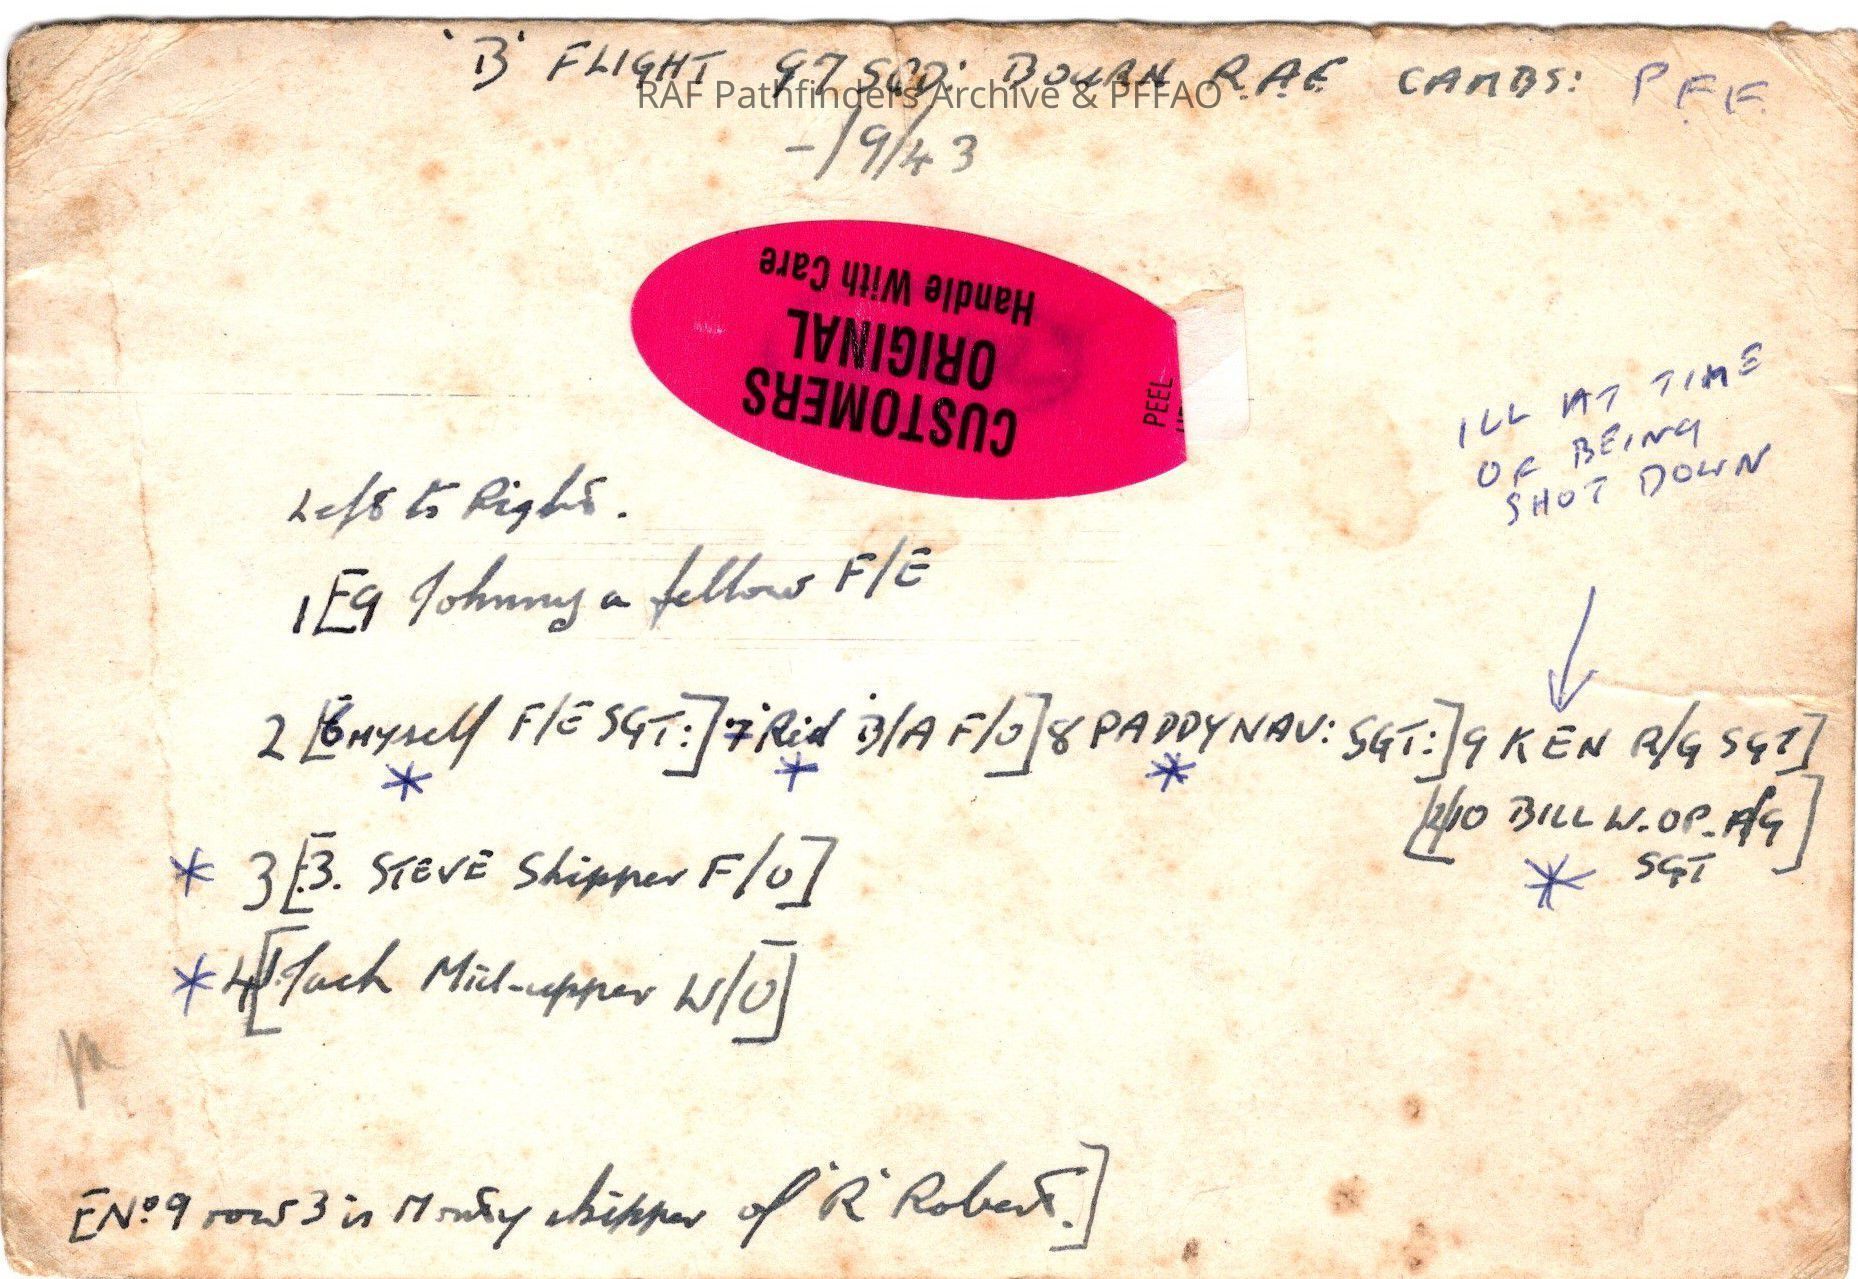 'B' FLIGHT 97 SQD: BOURN R.A.F. CAMBS: P.F.F.
RAF Pathfinders Archive & PFFAO
-/9/43
CUSTOMERS
ORIGINAL
Handle With Care
PEEL
ILL AT TIME
OF BEING
SHOT DOWN
Left to Right.
1 [9 Johnny a fellow F/E
2 [6 myself F/E SGT:] 7 B/A F/O] 8 PADDY NAV: SGT:] 9 KEN R/G SGT]
10 BILL W.OP. A/G]
SGT
* 3 [3. STEVE Skipper F/O]
* 4 [ Jack Mid-upper W/O]
[No 9 row 3 is Monty skipper of 'R' Robert.]